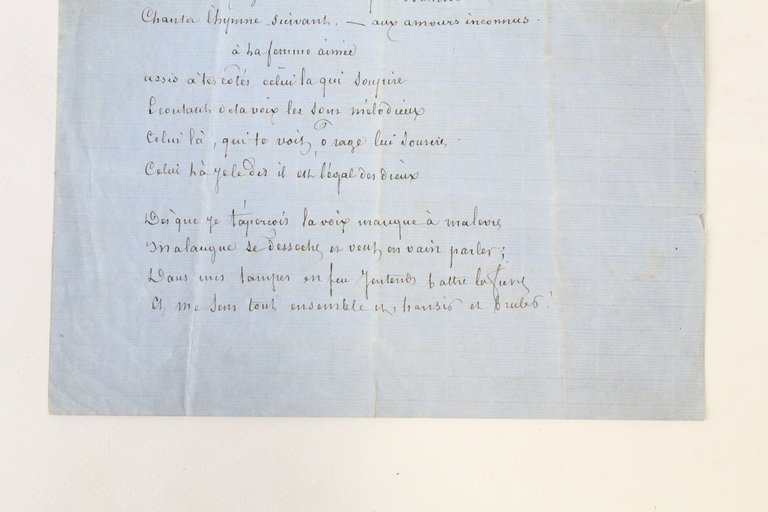 Chanta l'hymne suivant. — aux amours inconnus.
à la femme aimée
assis à tes côtés celui la qui soupire
Ecoutant de ta voix les sons mélodieux
Celui là, qui te voit, o rage lui sourire
Celui là je le dis il est l'égal des dieux
Dès que je t'aperçois la voix manque à ma levre
Ma langue se dessèche et veut en vain parler;
Dans mes tempes en feu j'entends battre la fievre
Et me sens tout ensemble et transir et bruler!